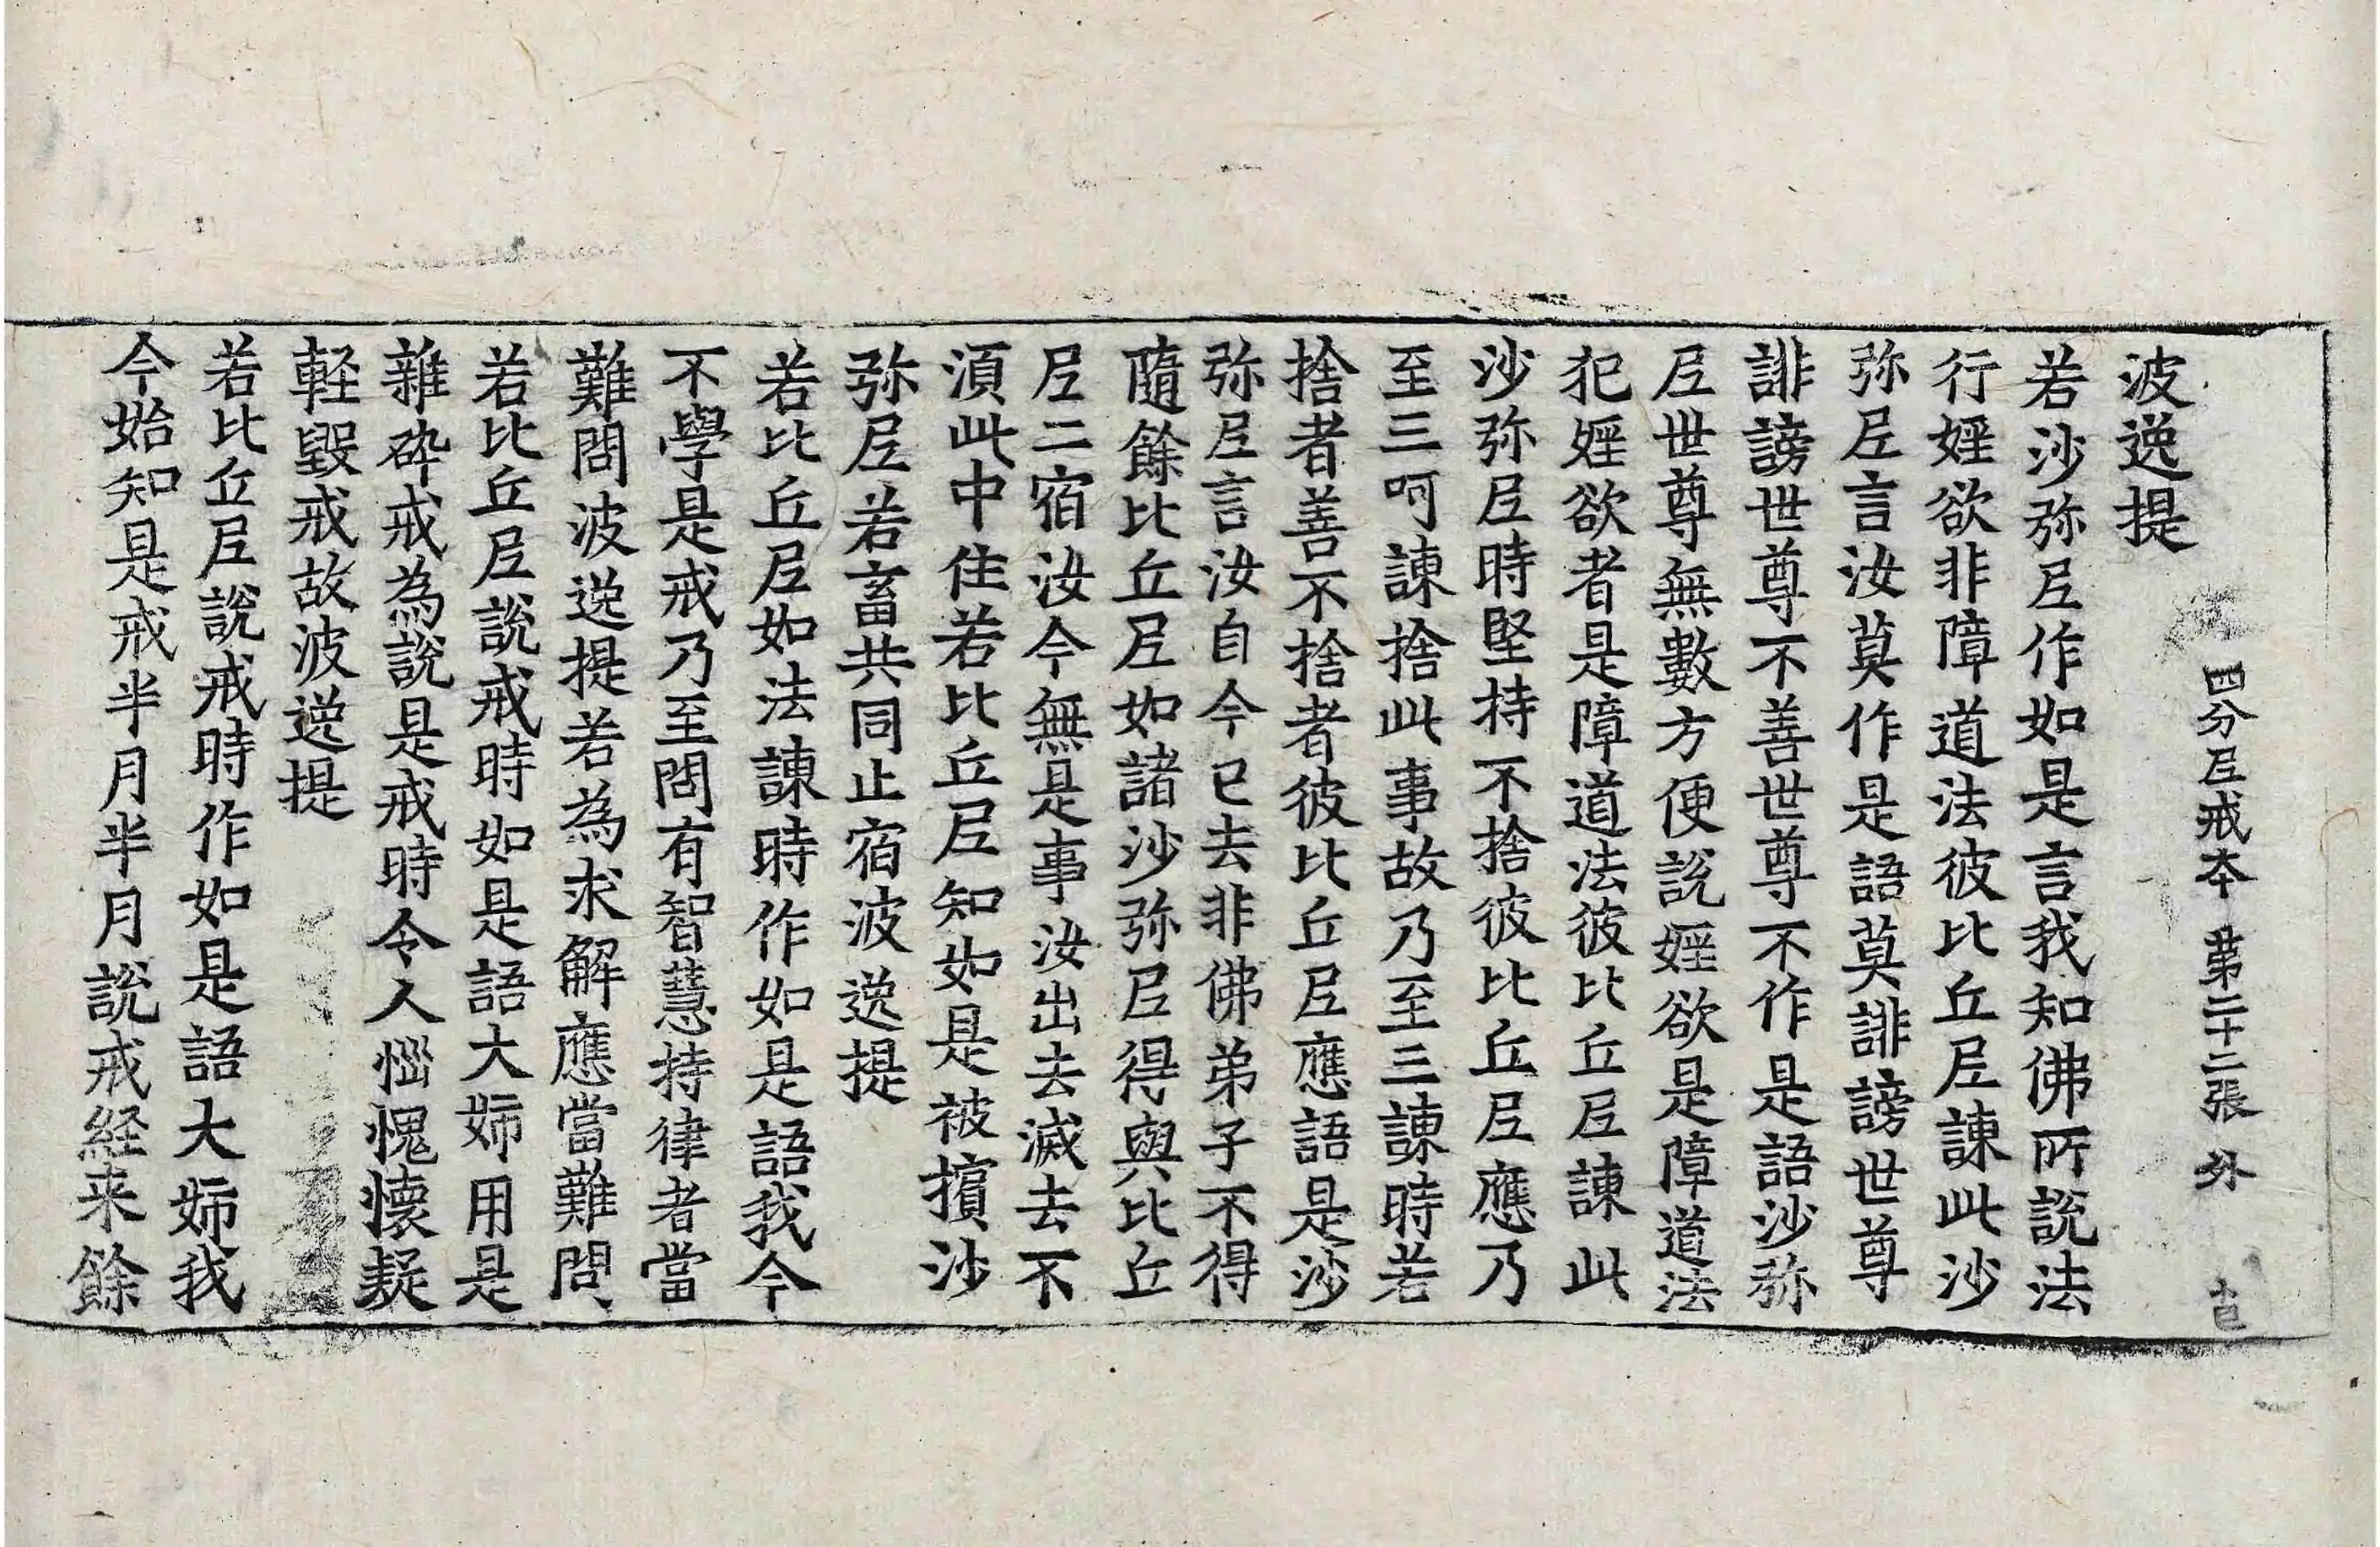 四分尼戒本 第二十二張 外
波逸提
若沙弥尼作如是言我知佛所說法
行婬欲非障道法彼比丘尼諫此沙
弥尼言汝莫作是語莫誹謗世尊
誹謗世尊不善世尊不作是語沙弥
尼世尊無數方便說婬欲是障道法
犯婬欲者是障道法彼比丘尼諫此
沙弥尼時堅持不捨彼比丘尼應乃
至三呵諫捨此事故乃至三諫時若
捨者善不捨者彼比丘尼應語是沙
弥尼言汝自今已去非佛弟子不得
隨餘比丘尼如諸沙弥尼得與比丘
尼二宿汝今無是事汝出去滅去不
湏此中住若比丘尼知如是被擯沙
弥尼若畜共同止宿波逸提
若比丘尼如法諫時作如是語我今
不學是戒乃至問有智慧持律者當
難問波逸提若為求解應當難問
若比丘尼說戒時如是語大姊用是
雜碎戒為說是戒時令人惱愧懷疑
軽毀戒故波逸提
若比丘尼說戒時作如是語大姊我
今始知是戒半月半月說戒経来餘